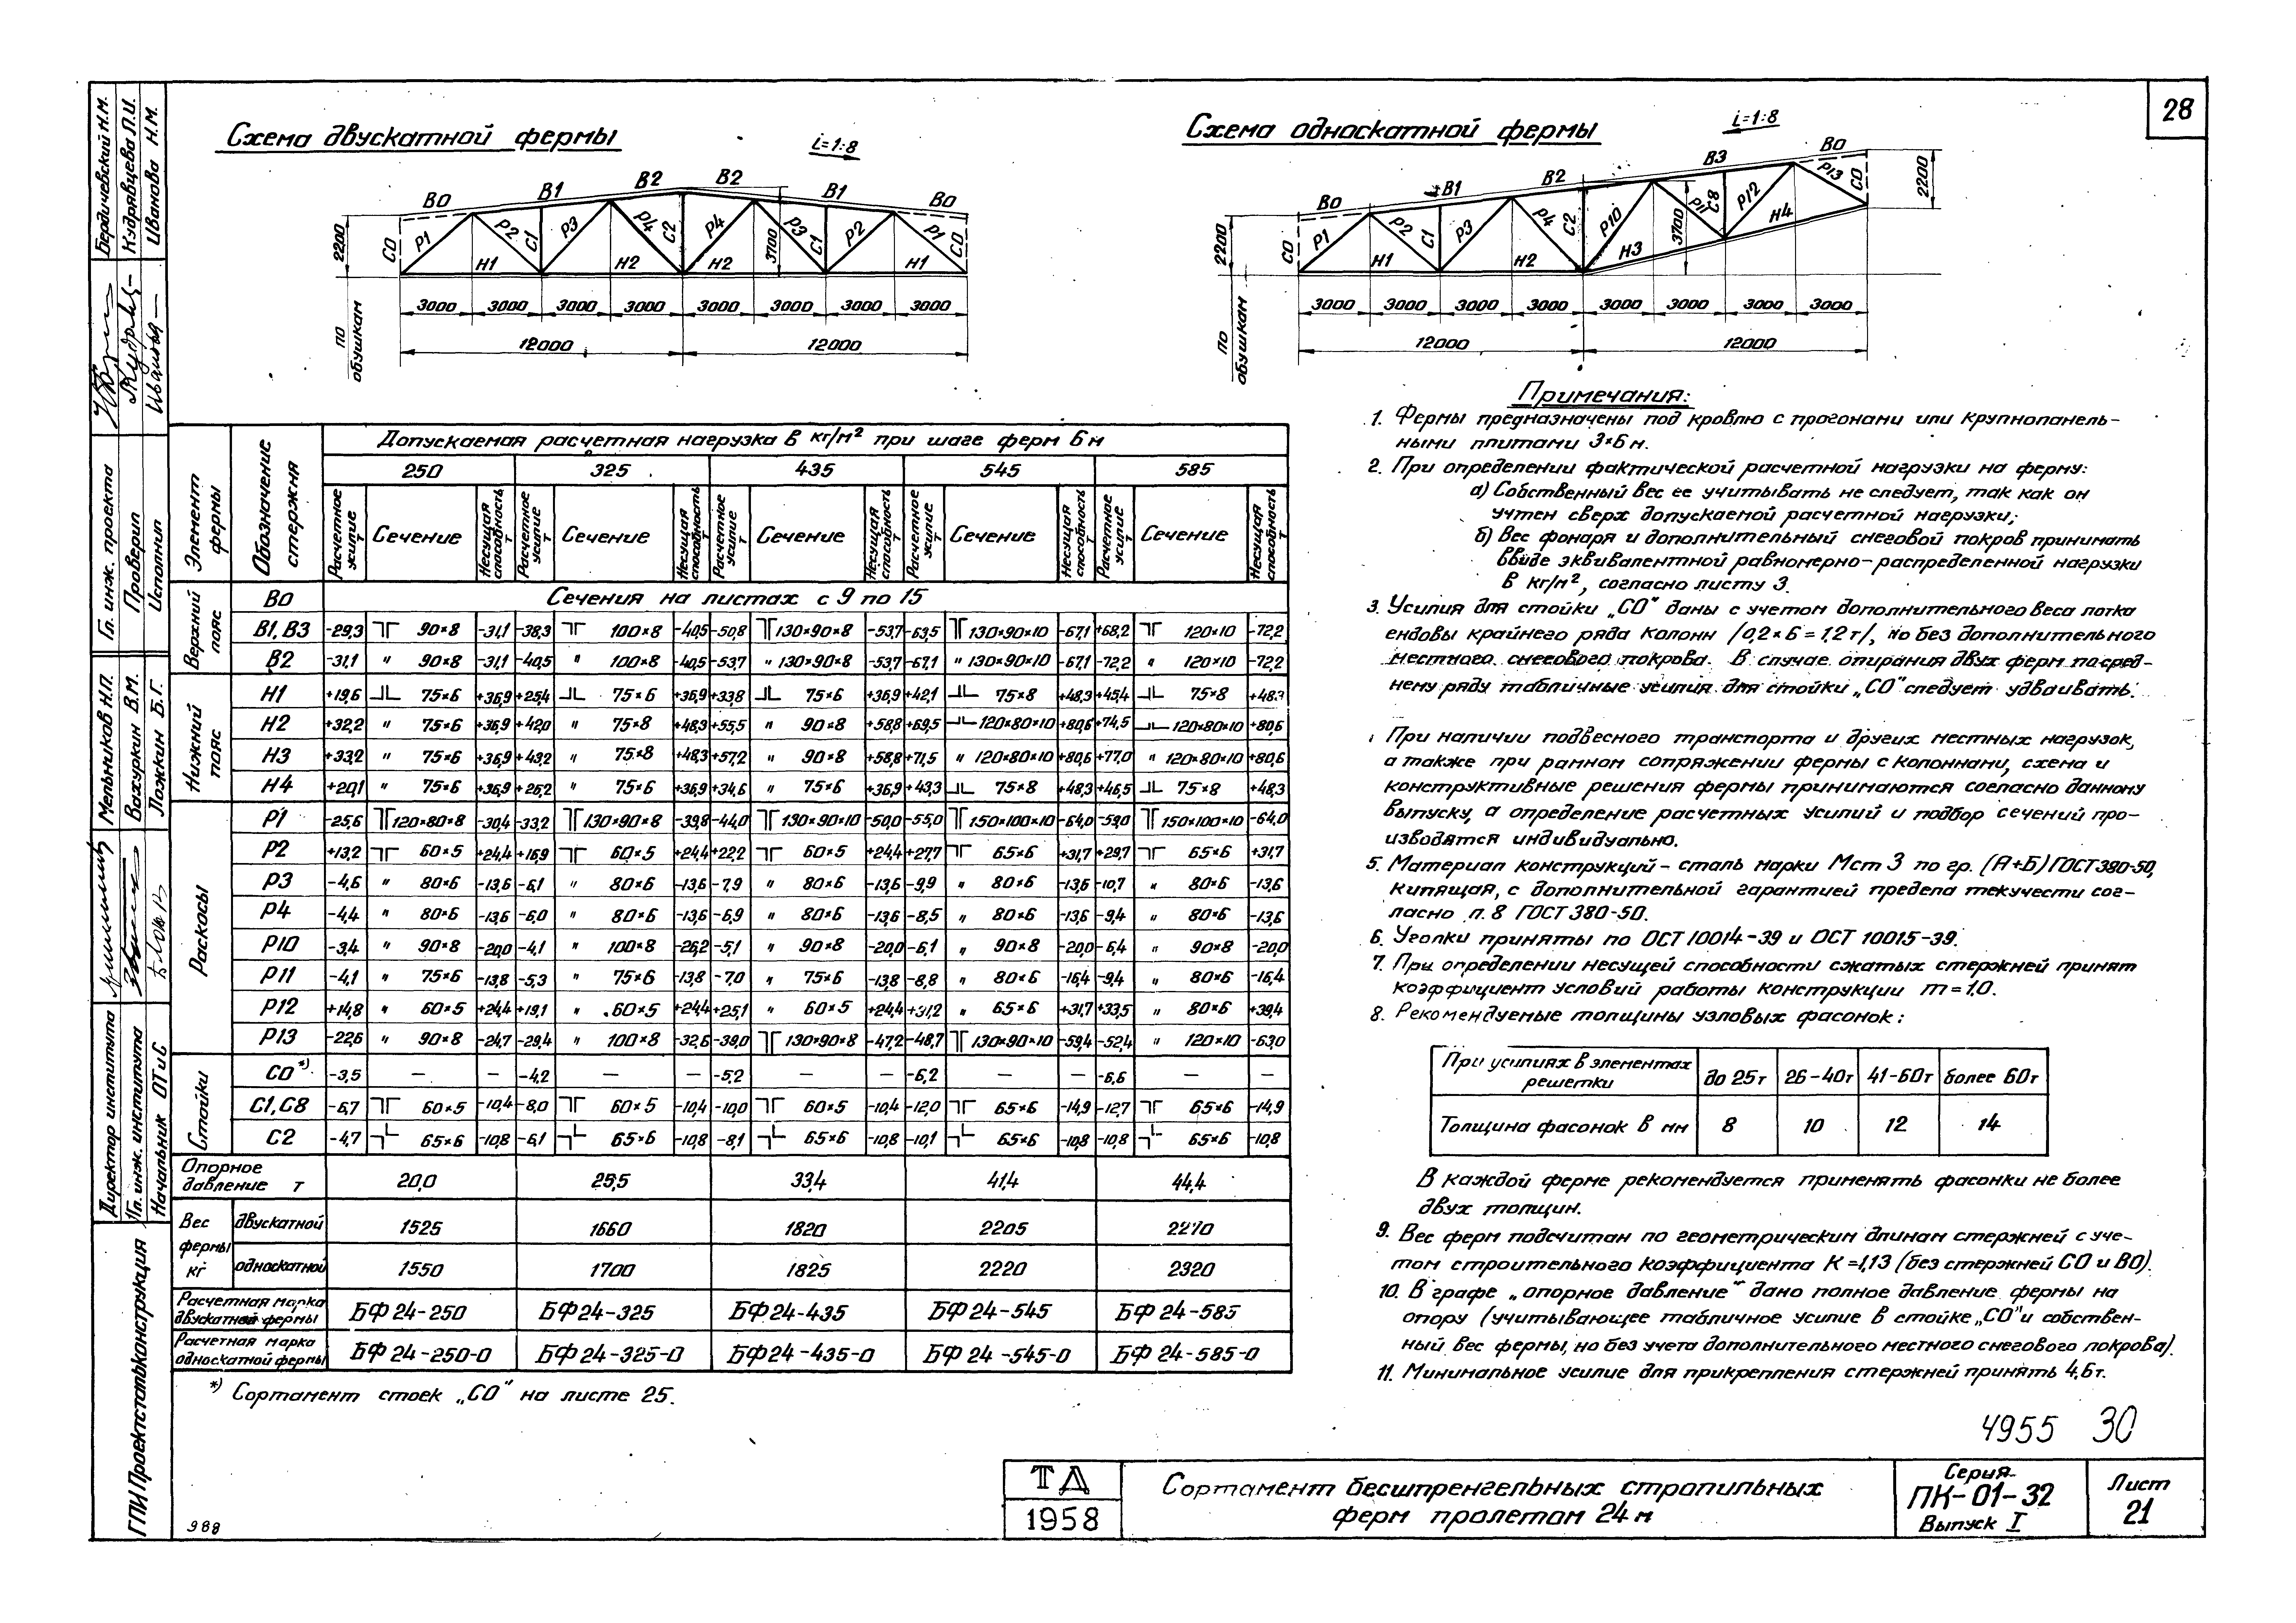 28
Схема двускатной фермы
i=1:8
В0 В1 В2 В2 В1 В0
С0 Р1 Р2 С1 Р3 Р4 С2 Р4 Р3 С1 Р2 Р1 С0
Н1 Н2 Н2 Н1
2200 3700
3000 3000 3000 3000 3000 3000 3000 3000
12000 12000
по обушкам
Схема односкатной фермы
i=1:8
В0 В1 В2 В3 В0
С0 Р1 Р2 С1 Р3 Р4 С2 Р10 Р11 С8 Р12 Р13 С0
Н1 Н2 Н3 Н4
2200 3700 2200
3000 3000 3000 3000 3000 3000 3000 3000
12000 12000
по обушкам
Элемент фермы
Обозначение стержня
Допускаемая расчетная нагрузка в кг/м² при шаге ферм 6м
250 325 435 545 585
Расчетное усилие т Сечение Несущая способность т Расчетное усилие т Сечение Несущая способность т Расчетное усилие т Сечение Несущая способность т Расчетное усилие т Сечение Несущая способность т Расчетное усилие т Сечение Несущая способность т
Верхний пояс
В0 Сечения на листах с 9 по 15
В1, В3 -29,3 90×8 -31,1 -38,3 100×8 -40,5 -50,8 130×90×8 -53,7 -63,5 130×90×10 -67,1 +68,2 120×10 -72,2
В2 -31,1 " 90×8 -31,1 -40,5 " 100×8 -40,5 -53,7 " 130×90×8 -53,7 -67,1 " 130×90×10 -67,1 -72,2 " 120×10 -72,2
Нижний пояс
Н1 +19,6 75×6 +36,9 +25,4 75×6 +36,9 +33,8 75×6 +36,9 +42,1 75×8 +48,3 +45,4 75×8 +48,3
Н2 +32,2 " 75×6 +36,9 +42,0 " 75×8 +48,3 +55,5 " 90×8 +58,8 +69,5 120×80×10 +80,6 +74,5 120×80×10 +80,6
Н3 +33,2 " 75×6 +36,9 +43,2 " 75×8 +48,3 +57,2 " 90×8 +58,8 +71,5 " 120×80×10 +80,6 +77,0 " 120×80×10 +80,6
Н4 +20,1 " 75×6 +36,9 +26,2 " 75×6 +36,9 +34,6 " 75×6 +36,9 +43,3 75×8 +48,3 +46,5 75×8 +48,3
Раскосы
Р1 -25,6 120×80×8 -30,4 -33,2 130×90×8 -39,8 -44,0 130×90×10 -50,0 -55,0 150×100×10 -64,0 -59,0 150×100×10 -64,0
Р2 +13,2 60×5 +24,4 +16,9 60×5 +24,4 +22,2 60×5 +24,4 +27,7 65×6 +31,7 +29,7 65×6 +31,7
Р3 -4,6 " 80×6 -13,6 -6,1 " 80×6 -13,6 -7,9 " 80×6 -13,6 -9,9 " 80×6 -13,6 -10,7 " 80×6 -13,6
Р4 -4,4 " 80×6 -13,6 -6,0 " 80×6 -13,6 -6,9 " 80×6 -13,6 -8,5 " 80×6 -13,6 -9,4 " 80×6 -13,6
Р10 -3,4 " 90×8 -20,0 -4,1 " 100×8 -26,2 -5,1 " 90×8 -20,0 -6,1 " 90×8 -20,0 -6,4 " 90×8 -20,0
Р11 -4,1 " 75×6 -13,8 -5,3 " 75×6 -13,8 -7,0 " 75×6 -13,8 -8,8 " 80×6 -16,4 -9,4 " 80×6 -16,4
Р12 +14,8 " 60×5 +24,4 +19,1 " 60×5 +24,4 +25,1 " 60×5 +24,4 +31,2 " 65×6 +31,7 +33,5 " 80×6 +39,4
Р13 -22,6 " 90×8 -24,7 -29,4 " 100×8 -32,6 -39,0 130×90×8 -47,2 -48,7 130×90×10 -59,4 -52,4 " 120×10 -63,0
Стойки
С0 *) -3,5 — — -4,2 — — -5,2 — — -6,2 — — -6,6 — —
С1, С8 -6,7 60×5 -10,4 -8,0 60×5 -10,4 -10,0 60×5 -10,4 -12,0 65×6 -14,9 -12,7 65×6 -14,9
С2 -4,7 65×6 -10,8 -6,1 65×6 -10,8 -8,1 65×6 -10,8 -10,1 65×6 -10,8 -10,8 65×6 -10,8
Опорное давление т 20,0 25,5 33,4 41,4 44,4
Вес фермы кг
двускатной 1525 1660 1820 2205 2270
односкатной 1550 1700 1825 2220 2320
Расчетная марка двускатной фермы БФ24-250 БФ24-325 БФ24-435 БФ24-545 БФ24-585
Расчетная марка односкатной фермы БФ24-250-0 БФ24-325-0 БФ24-435-0 БФ24-545-0 БФ24-585-0
*) Сортамент стоек „С0" на листе 25.
Примечания:
1. Фермы предназначены под кровлю с прогонами или крупнопанель-
ными плитами 3×6 м.
2. При определении фактической расчетной нагрузки на ферму:
а) Собственный вес ее учитывать не следует, так как он
учтен сверх допускаемой расчетной нагрузки;
б) Вес фонаря и дополнительный снеговой покров принимать
ввиде эквивалентной равномерно-распределенной нагрузки
в кг/м², согласно листу 3.
3. Усилия для стойки „С0" даны с учетом дополнительного веса лотка
ендовы крайнего ряда колонн /0,2×6=1,2т/, но без дополнительного
местного снегового покрова. В случае опирания двух ферм по сред-
нему ряду табличные усилия для стойки „С0" следует удваивать.
При наличии подвесного транспорта и других местных нагрузок,
а также при рамном сопряжении фермы с колоннами, схема и
конструктивные решения фермы принимаются согласно данному
выпуску, а определение расчетных усилий и подбор сечений про-
изводятся индивидуально.
5. Материал конструкций – сталь марки Мст 3 по гр. (А+Б) ГОСТ 380-50,
кипящая, с дополнительной гарантией предела текучести сог-
ласно п. 8 ГОСТ 380-50.
6. Уголки приняты по ОСТ 10014-39 и ОСТ 10015-39.
7. При определении несущей способности сжатых стержней принят
коэффициент условий работы конструкции m=1,0.
8. Рекомендуемые толщины узловых фасонок:
При усилиях в элементах решетки до 25т 26-40т 41-60т более 60т
Толщина фасонок в мм 8 10 12 14
В каждой ферме рекомендуется применять фасонки не более
двух толщин.
9. Вес ферм подсчитан по геометрическим длинам стержней с уче-
том строительного коэффициента К=1,13 (без стержней С0 и В0).
10. В графе „опорное давление" дано полное давление фермы на
опору (учитывающее табличное усилие в стойке „С0" и собствен-
ный вес фермы, но без учета дополнительного местного снегового покрова).
11. Минимальное усилие для прикрепления стержней принять 4,6т.
4955 30
ТД
1958
Сортамент бесшпренгельных стропильных
ферм пролетом 24м
Серия
ПК-01-32
Выпуск I
Лист
21
988
Бердичевский Н.М.
Кудрявцева Л.И.
Иванова Н.М.
Гл. инж. проекта
Проверил
Исполнил
Мельников Н.П.
Вахуркин В.М.
Ложкин Б.Г.
Директор института
Гл. инж. института
Начальник ОТиС
ГПИ Проектстальконструкция